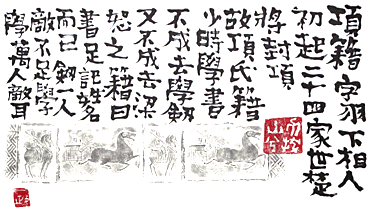 項籍字羽下相人
初起二十四家世楚
將封項
故項氏籍
少時學書
不成去學劍
又不成去梁
怒之籍曰
書足記姓名
而已劍一人
敵不足學
學萬人敵耳